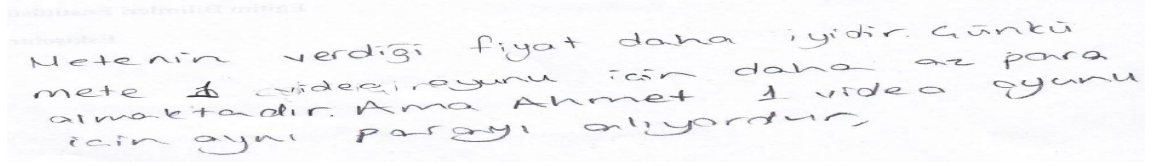 Metenin verdiği fiyat daha iyidir. Günkü
mete 1 video oyunu için daha az para
almaktadır. Ama Ahmet 1 video oyunu
için aynı parayı alıyordur,